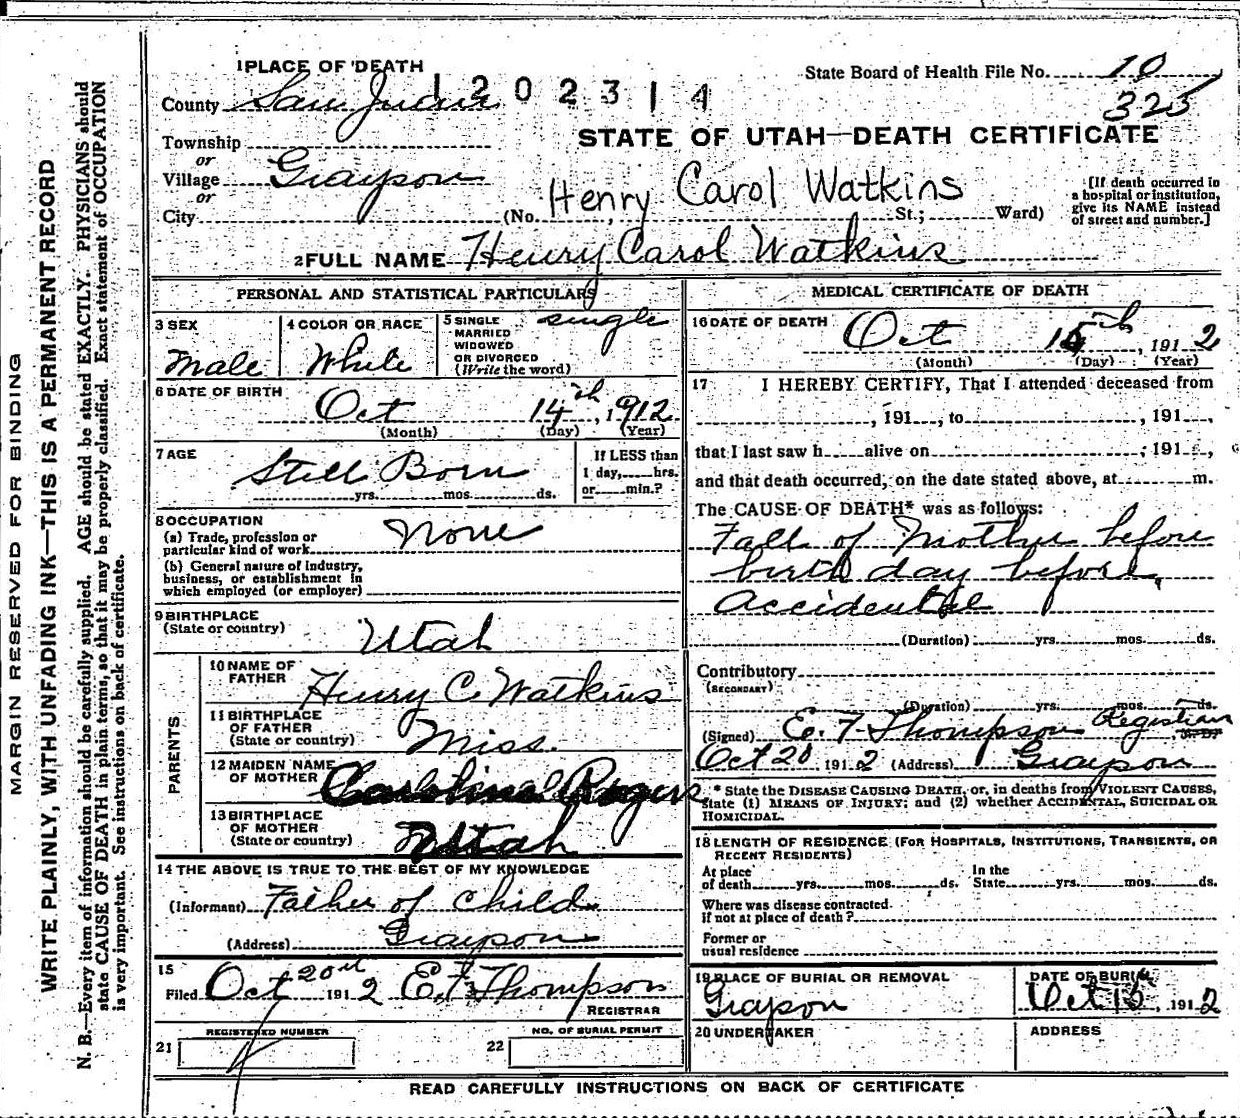 MARGIN RESERVED FOR BINDING
WRITE PLAINLY, WITH UNFADING INK—THIS IS A PERMANENT RECORD
N. B.—Every item of information should be carefully supplied. AGE should be stated EXACTLY. PHYSICIANS should
state CAUSE OF DEATH in plain terms, so that it may be properly classified. Exact statement of OCCUPATION
is very important. See instructions on back of certificate.
1 PLACE OF DEATH
1202314
State Board of Health File No. 10
325
County San Juan
STATE OF UTAH—DEATH CERTIFICATE
Township
or
Village Grayson
or
City
(No. St.; Ward)
Henry Carol Watkins
[If death occurred in
a hospital or institution,
give its NAME instead
of street and number.]
2 FULL NAME Henry Carol Watkins
PERSONAL AND STATISTICAL PARTICULARS
3 SEX
Male
4 COLOR OR RACE
White
5 SINGLE
MARRIED
WIDOWED
OR DIVORCED
(Write the word)
single
6 DATE OF BIRTH
Oct 14th, 1912
(Month) (Day) (Year)
7 AGE
Still Born
yrs. mos. ds.
If LESS than
1 day, hrs.
or min.?
8 OCCUPATION
(a) Trade, profession or
particular kind of work
None
(b) General nature of industry,
business, or establishment in
which employed (or employer)
9 BIRTHPLACE
(State or country)
Utah
PARENTS
10 NAME OF
FATHER
Henry C. Watkins
11 BIRTHPLACE
OF FATHER
(State or country)
Miss.
12 MAIDEN NAME
OF MOTHER
Rogers
13 BIRTHPLACE
OF MOTHER
(State or country)
Utah
14 THE ABOVE IS TRUE TO THE BEST OF MY KNOWLEDGE
(Informant) Father of Child
(Address) Grayson
15
Filed Oct 20th 1912 E. F. Thompson
REGISTRAR
REGISTERED NUMBER
21
NO. OF BURIAL PERMIT
22
MEDICAL CERTIFICATE OF DEATH
16 DATE OF DEATH
Oct th, 1912
(Month) (Day) (Year)
17 I HEREBY CERTIFY, That I attended deceased from
, 191 , to , 191 ,
that I last saw h alive on , 191 ,
and that death occurred, on the date stated above, at m.
The CAUSE OF DEATH* was as follows:
Fall of Mother before
birth day before,
Accidental
(Duration) yrs. mos. ds.
Contributory
(SECONDARY)
(Duration) yrs. mos. ds.
(Signed) E. F. Thompson Registrar M. D.
Oct 20 1912 (Address) Grayson
* State the DISEASE CAUSING DEATH, or, in deaths from VIOLENT CAUSES,
state (1) MEANS OF INJURY; and (2) whether ACCIDENTAL, SUICIDAL OR
HOMICIDAL.
18 LENGTH OF RESIDENCE (FOR HOSPITALS, INSTITUTIONS, TRANSIENTS, OR
RECENT RESIDENTS)
At place
of death yrs. mos. ds.
In the
State yrs. mos. ds.
Where was disease contracted
if not at place of death?
Former or
usual residence
19 PLACE OF BURIAL OR REMOVAL
Grayson
DATE OF BURIAL
Oct 15, 1912
20 UNDERTAKER
ADDRESS
READ CAREFULLY INSTRUCTIONS ON BACK OF CERTIFICATE